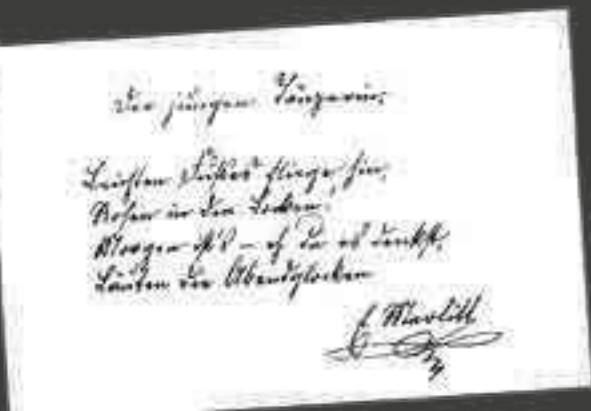 Der jungen Tänzerin.
Leichten Fußes fliege hin,
Rosen in den Locken.
Morgen ist's – eh du es denkst,
Läuten die Abendglocken
E Marlitt